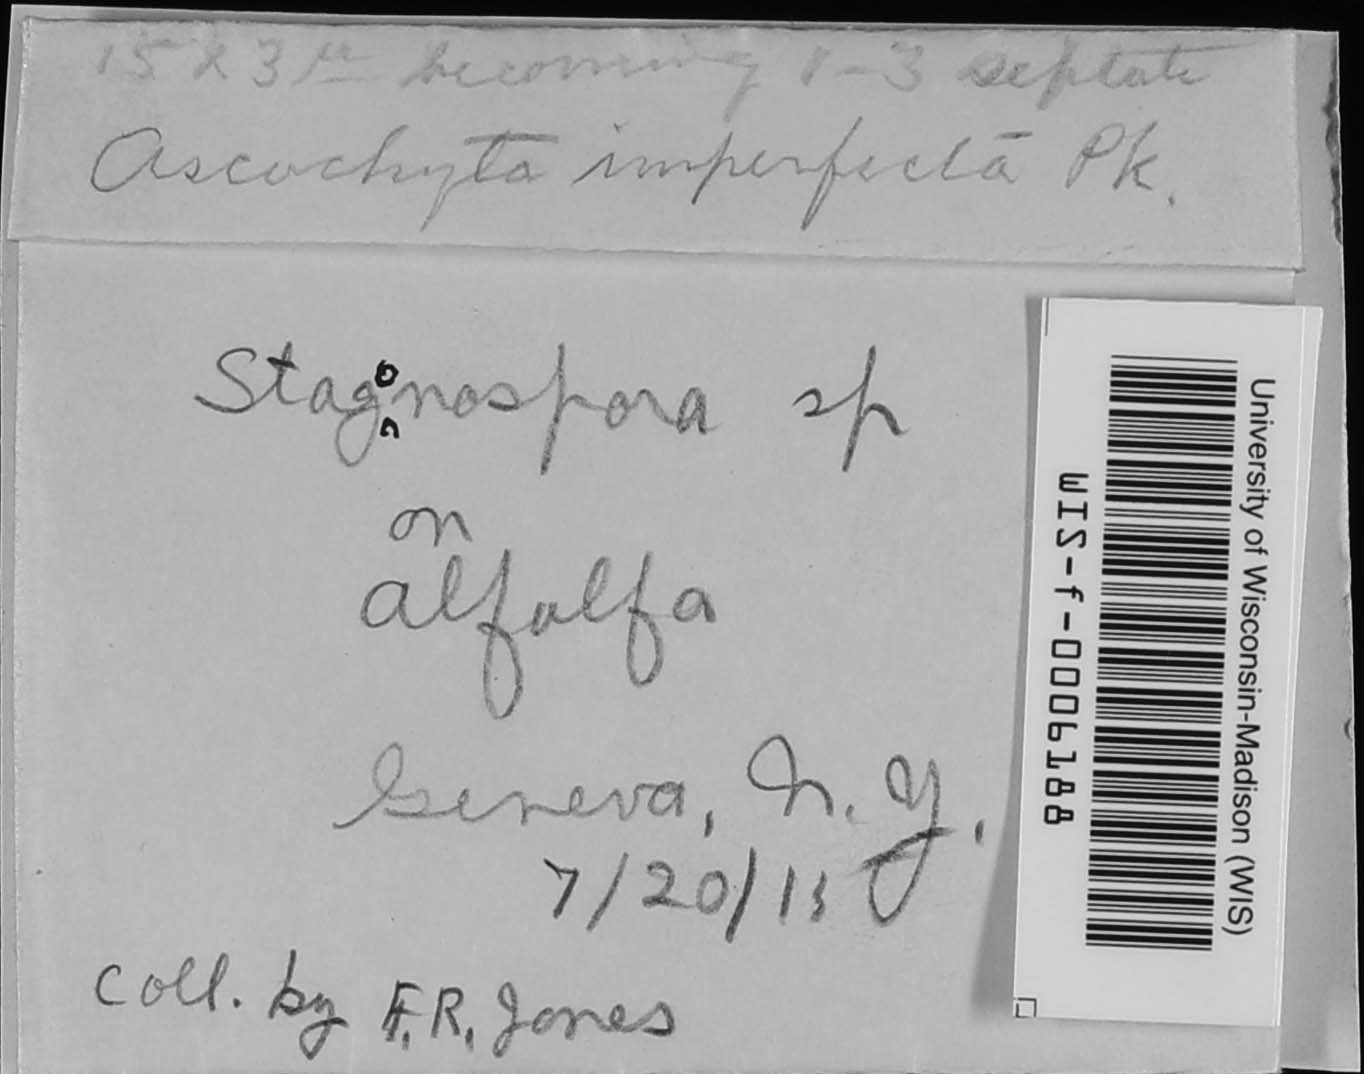 15 x 3 µ becoming 1-3 septate
Ascochyta imperfecta Pk.
Stagonospora sp
on
alfalfa
Geneva, N. Y.
7/20/13
Coll. by F.R. Jones
University of Wisconsin-Madison (WIS)
WIS-f-0006188